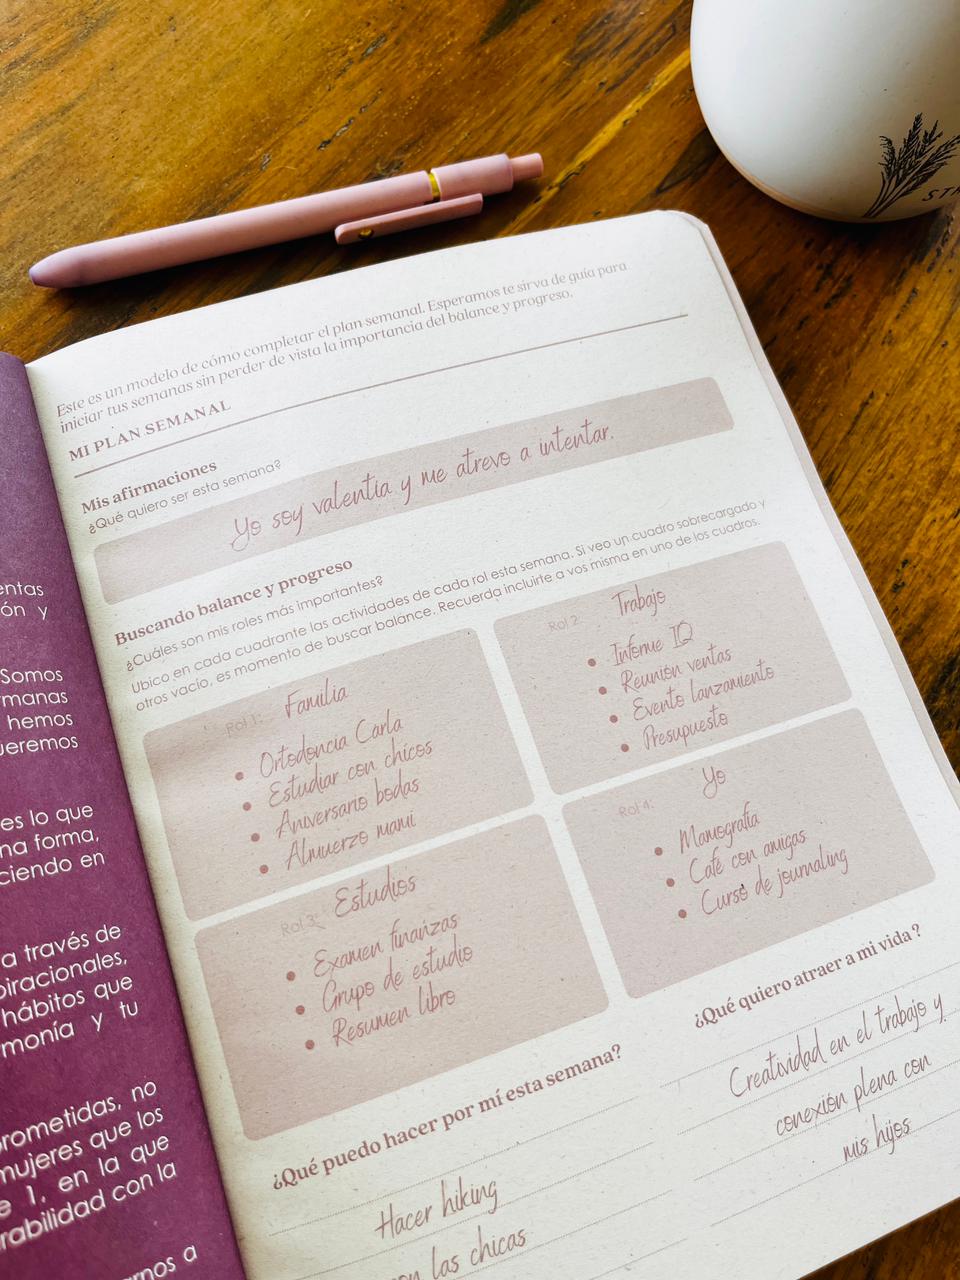 entas
ón y
Somos
rmanas
hemos
ueremos
es lo que
na forma,
ciendo en
a través de
piracionales,
hábitos que
monía y tu
prometidas, no
mujeres que los
e 1, en la que
rabilidad con la
rnos a
Este es un modelo de cómo completar el plan semanal. Esperamos te sirva de guía para
iniciar tus semanas sin perder de vista la importancia del balance y progreso.
MI PLAN SEMANAL
Mis afirmaciones
¿Qué quiero ser esta semana?
Yo soy valentía y me atrevo a intentar.
Buscando balance y progreso
¿Cuáles son mis roles más importantes?
Ubico en cada cuadrante las actividades de cada rol esta semana. Si veo un cuadro sobrecargado y
otros vacío, es momento de buscar balance. Recuerda incluirte a vos misma en uno de los cuadros.
Rol 1: Familia
• Ortodoncia Carla
• Estudiar con chicos
• Aniversario bodas
• Almuerzo mami
Rol 2: Trabajo
• Informe IQ
• Reunión ventas
• Evento lanzamiento
• Presupuesto
Rol 3: Estudios
• Examen finanzas
• Grupo de estudio
• Resumen libro
Rol 4: Yo
• Mamografía
• Café con amigas
• Curso de journaling
¿Qué puedo hacer por mí esta semana?
Hacer hiking
con las chicas
¿Qué quiero atraer a mi vida?
Creatividad en el trabajo y
conexión plena con
mis hijos
ST